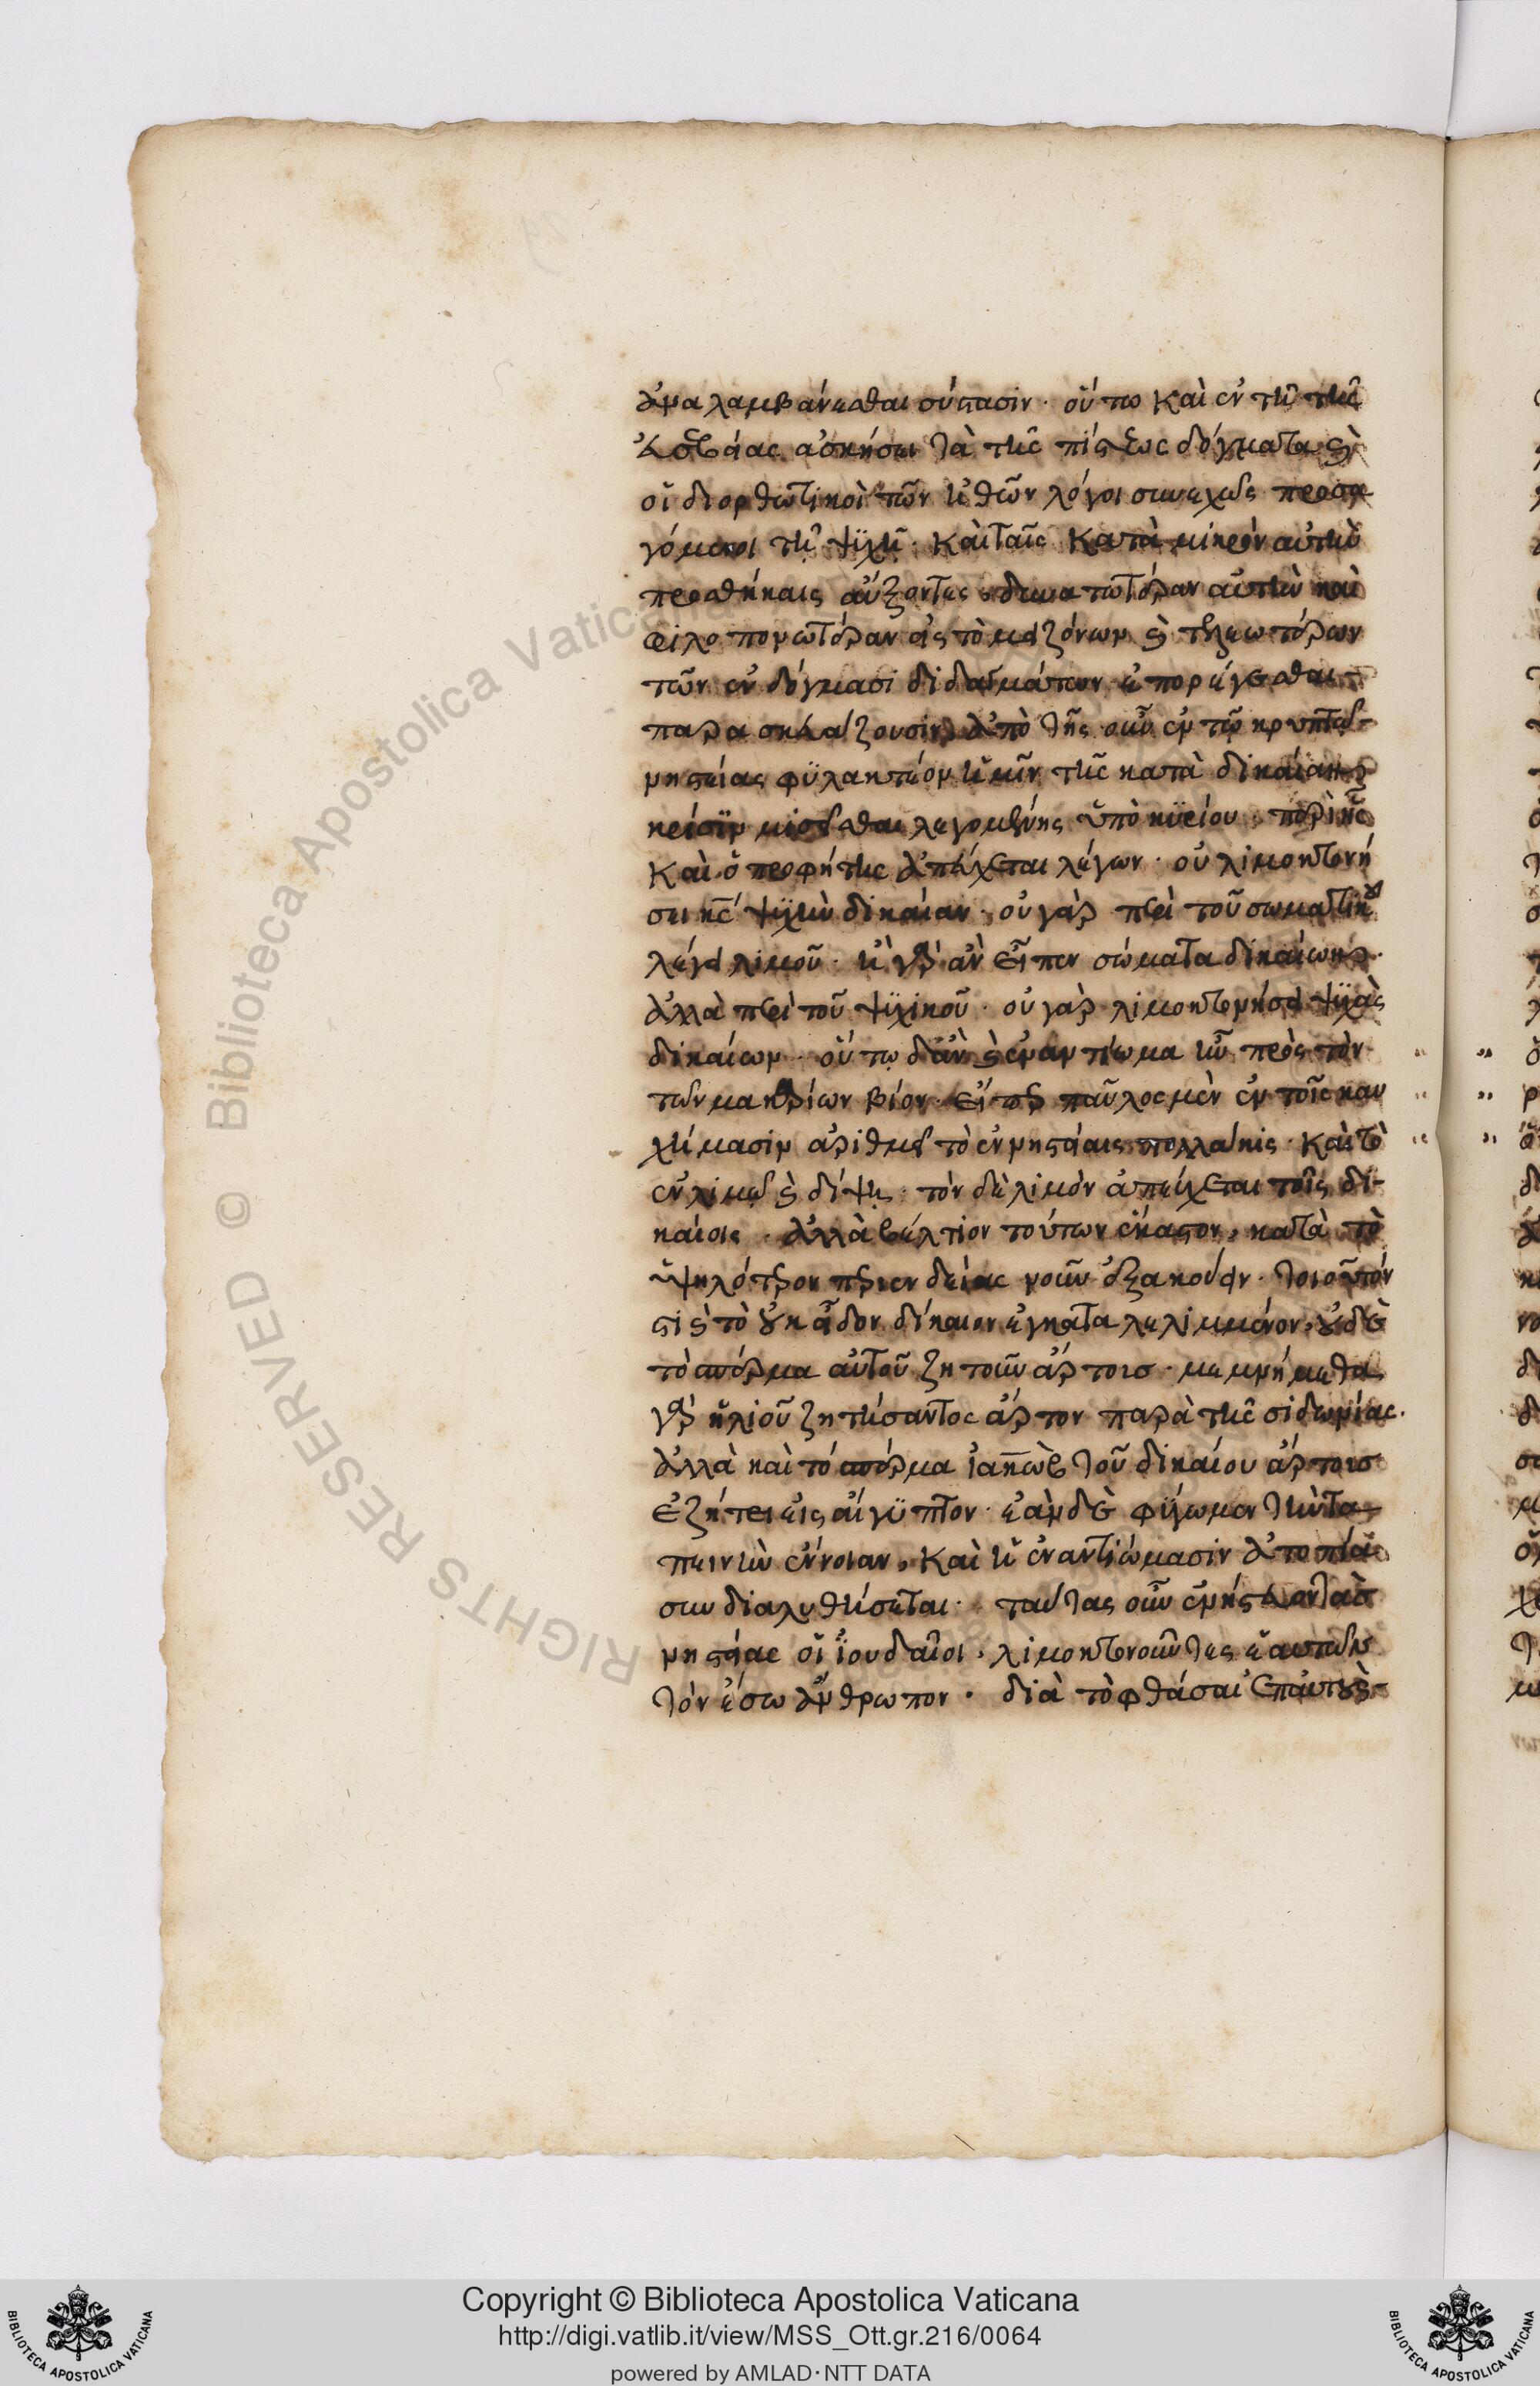 ἀναλαμβάνεσθαι σύστασιν· οὕτω καὶ ἐν τῇ τῆς
εὐσεβείας ἀσκήσει τὰ τῆς πίστεως δόγματα καὶ
οἱ διορθωτικοὶ τῶν ἠθῶν λόγοι συνεχῶς προσα
γόμενοι τῇ ψυχῇ· καὶ ταῖς κατὰ μικρὸν αὐτὴν
προσθήκαις αὔξοντες, δυνατωτέραν αὐτὴν καὶ
φιλοπονωτέραν εἰς τὸ μειζόνων καὶ τελεωτέρων
τῶν ἐν δόγμασι διδαγμάτων ἐπορέγεσθαι
παρασκευάζουσιν, ἀπὸ τῆς οὖν ἐν τῷ κρυπτῷ
νηστείας φυλακτέον ἡμῖν τῆς κατὰ δικαίαν
κρίσιν μισεῖσθαι λεγομένης ὑπὸ κυρίου, περὶ ἧς
καὶ ὁ προφήτης ἀπεύχεται λέγων· οὐ λιμοκτονή
σει κς ψυχὴν δικαίαν· οὐ γὰρ περὶ τοῦ σωματικοῦ
λέγει λιμοῦ· ἢ γὰρ ἂν εἶπεν σώματα δικαίων·
ἀλλὰ περὶ τοῦ ψυχικοῦ· οὐ γὰρ λιμοκτονήσει ψυχὰς
δικαίων· οὕτω δ' ἂν καὶ ἐναντίωμα ἦν πρὸς τὸν
τῶν μακαρίων βίον· εἴπερ παῦλος μὲν ἐν τοῖς καυ
χήμασιν ἀριθμεῖ τὸ ἐν νηστείαις πολλάκις· καὶ τὸ
ἐν λιμῷ καὶ δίψῃ· τὸν δὲ λιμὸν ἀπεύχεται τοῖς δι-
καίοις· ἀλλὰ βέλτιον τούτων ἕκαστον, κατὰ τὸ
ὑψηλότερον τῆς ἐνδείας νοεῖν ἐξακούειν· τοιοῦτόν
ἐστι καὶ τὸ οὐκ εἶδον δίκαιον ἐγκαταλελιμμένον, οὐδὲ
τὸ σπέρμα αὐτοῦ ζητοῦν ἄρτους· μεμνήμεθα
γὰρ ἠλιοῦ ζητήσαντος ἄρτον παρὰ τῆς σιδωνίας·
ἀλλὰ καὶ τὸ σπέρμα ἰακὼβ τοῦ δικαίου ἄρτους
ἐζήτει εἰς αἴγυπτον· ἐὰν δὲ φύγωμεν τὴν τα
πεινὴν ἔννοιαν, καὶ ἡ ἐναντιώμασιν
διαλυθήσεται· ταύτας οὖν ἐνήστευον τὰς
νηστείας οἱ ἰουδαῖοι, λιμοκτονοῦντες ἑαυτῶν
τὸν ἔσω ἄνθρωπον· διὰ τὸ φθάσαι ἐπ' αὐτοὺς
Copyright © Biblioteca Apostolica Vaticana
http://digi.vatlib.it/view/MSS_Ott.gr.216/0064
powered by AMLAD·NTT DATA
BIBLIOTECA APOSTOLICA VATICANA
BIBLIOTECA APOSTOLICA VATICANA
RIGHTS RESERVED © Biblioteca Apostolica Vaticana